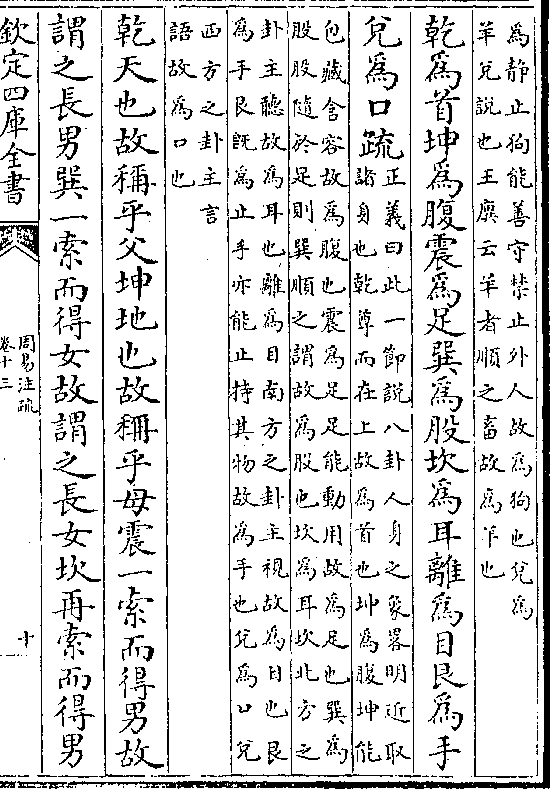 為静止狗能善守禁止外人故為狗也兌為
羊兌說也王廙云羊者順之畜故為羊也
乾為首坤為腹震為足巽為股坎為耳離為目艮為手
兌為口疏
正義曰此一節說八卦人身之象畧明近取
諸身也乾尊而在上故為首也坤為腹坤能
包藏含容故為腹也震為足足能動用故為足也巽為
股股隨於足則巽順之謂故為股也坎為耳坎北方之
卦主聽故為耳也離為目南方之卦主視故為目也艮
為手艮既為止手亦能止持其物故為手也兌為口兌
西方之卦主言
語故為口也
乾天也故稱乎父坤地也故稱乎母震一索而得男故
謂之長男巽一索而得女故謂之長女坎再索而得男
欽定四庫全書
周易注疏
卷十三
十